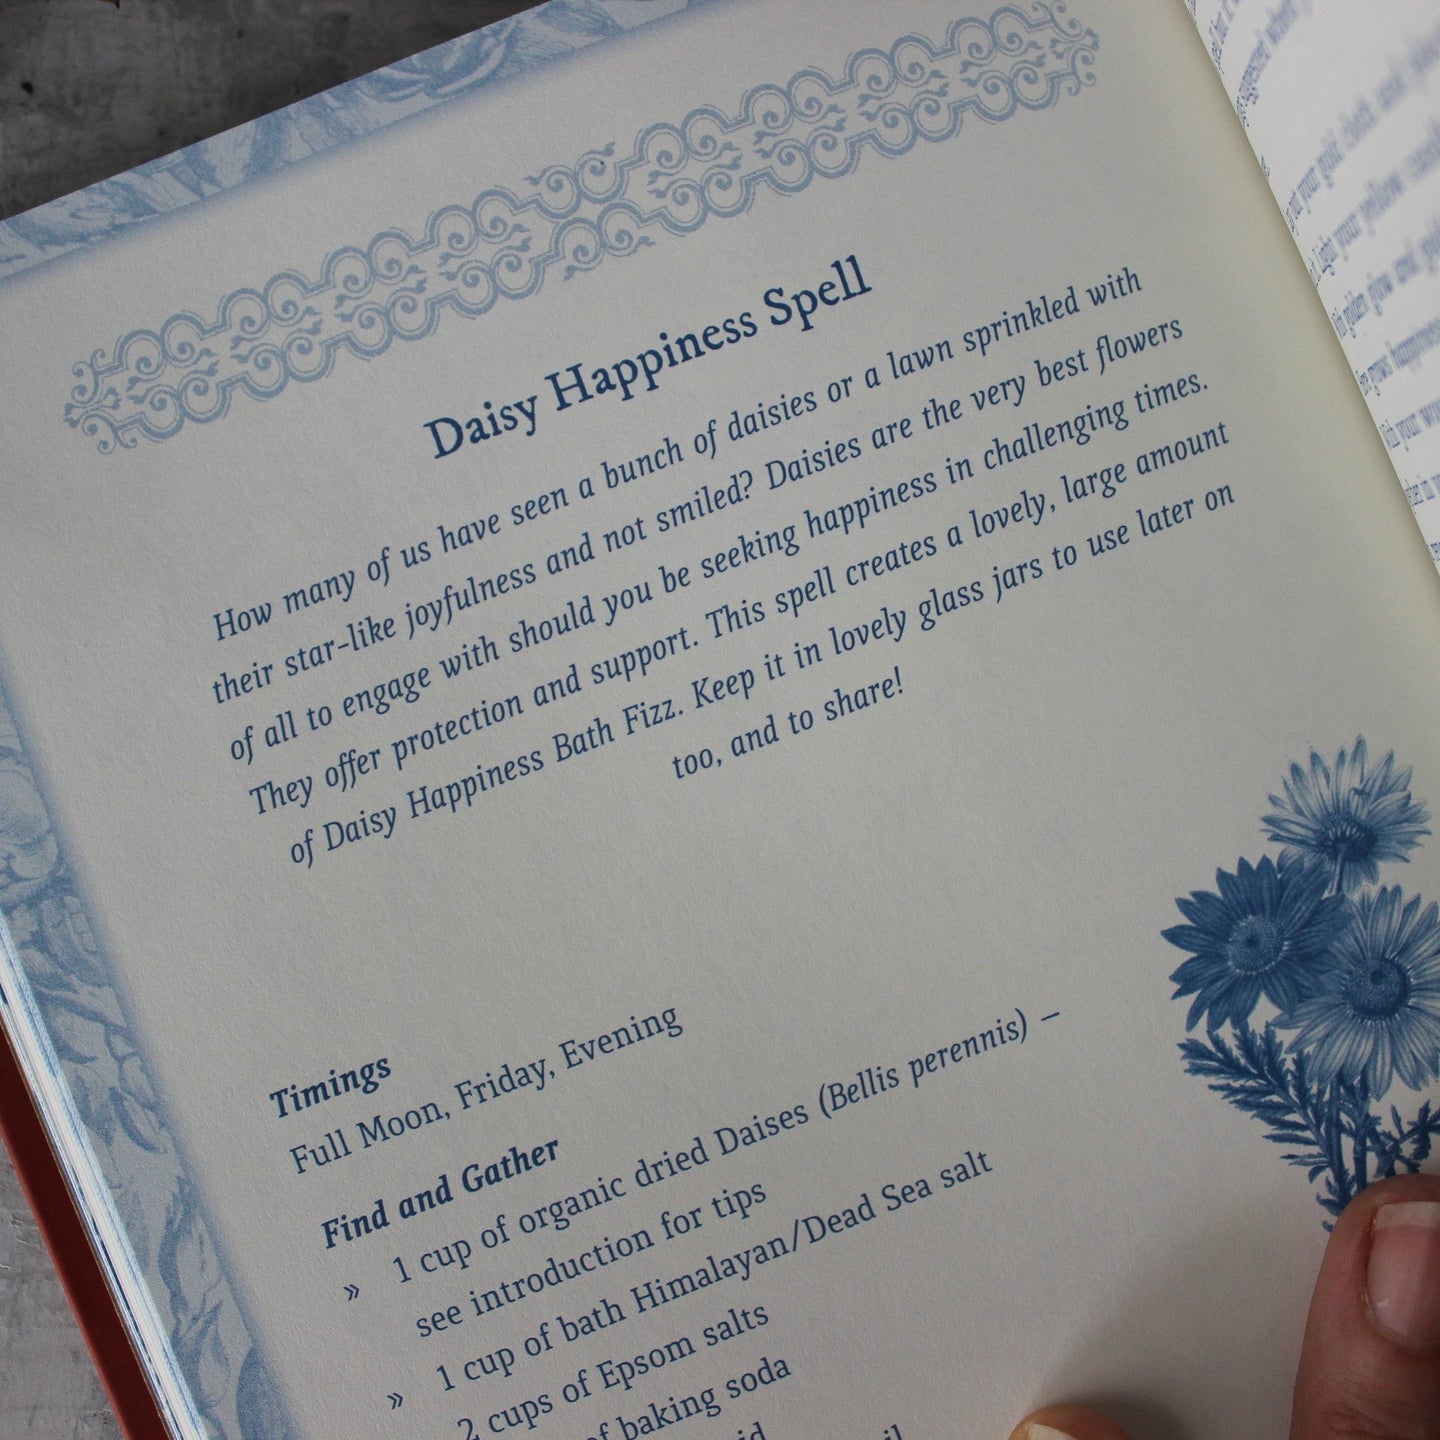 Daisy Happiness Spell
How many of us have seen a bunch of daisies or a lawn sprinkled with
their star-like joyfulness and not smiled? Daisies are the very best flowers
of all to engage with should you be seeking happiness in challenging times.
They offer protection and support. This spell creates a lovely, large amount
of Daisy Happiness Bath Fizz. Keep it in lovely glass jars to use later on
too, and to share!
Timings
Full Moon, Friday, Evening
Find and Gather
» 1 cup of organic dried Daises (Bellis perennis) –
see introduction for tips
» 1 cup of bath Himalayan/Dead Sea salt
2 cups of Epsom salts
of baking soda
suggested
your gold cloth and
Light your yellow
golden glow and
grows happiness
your